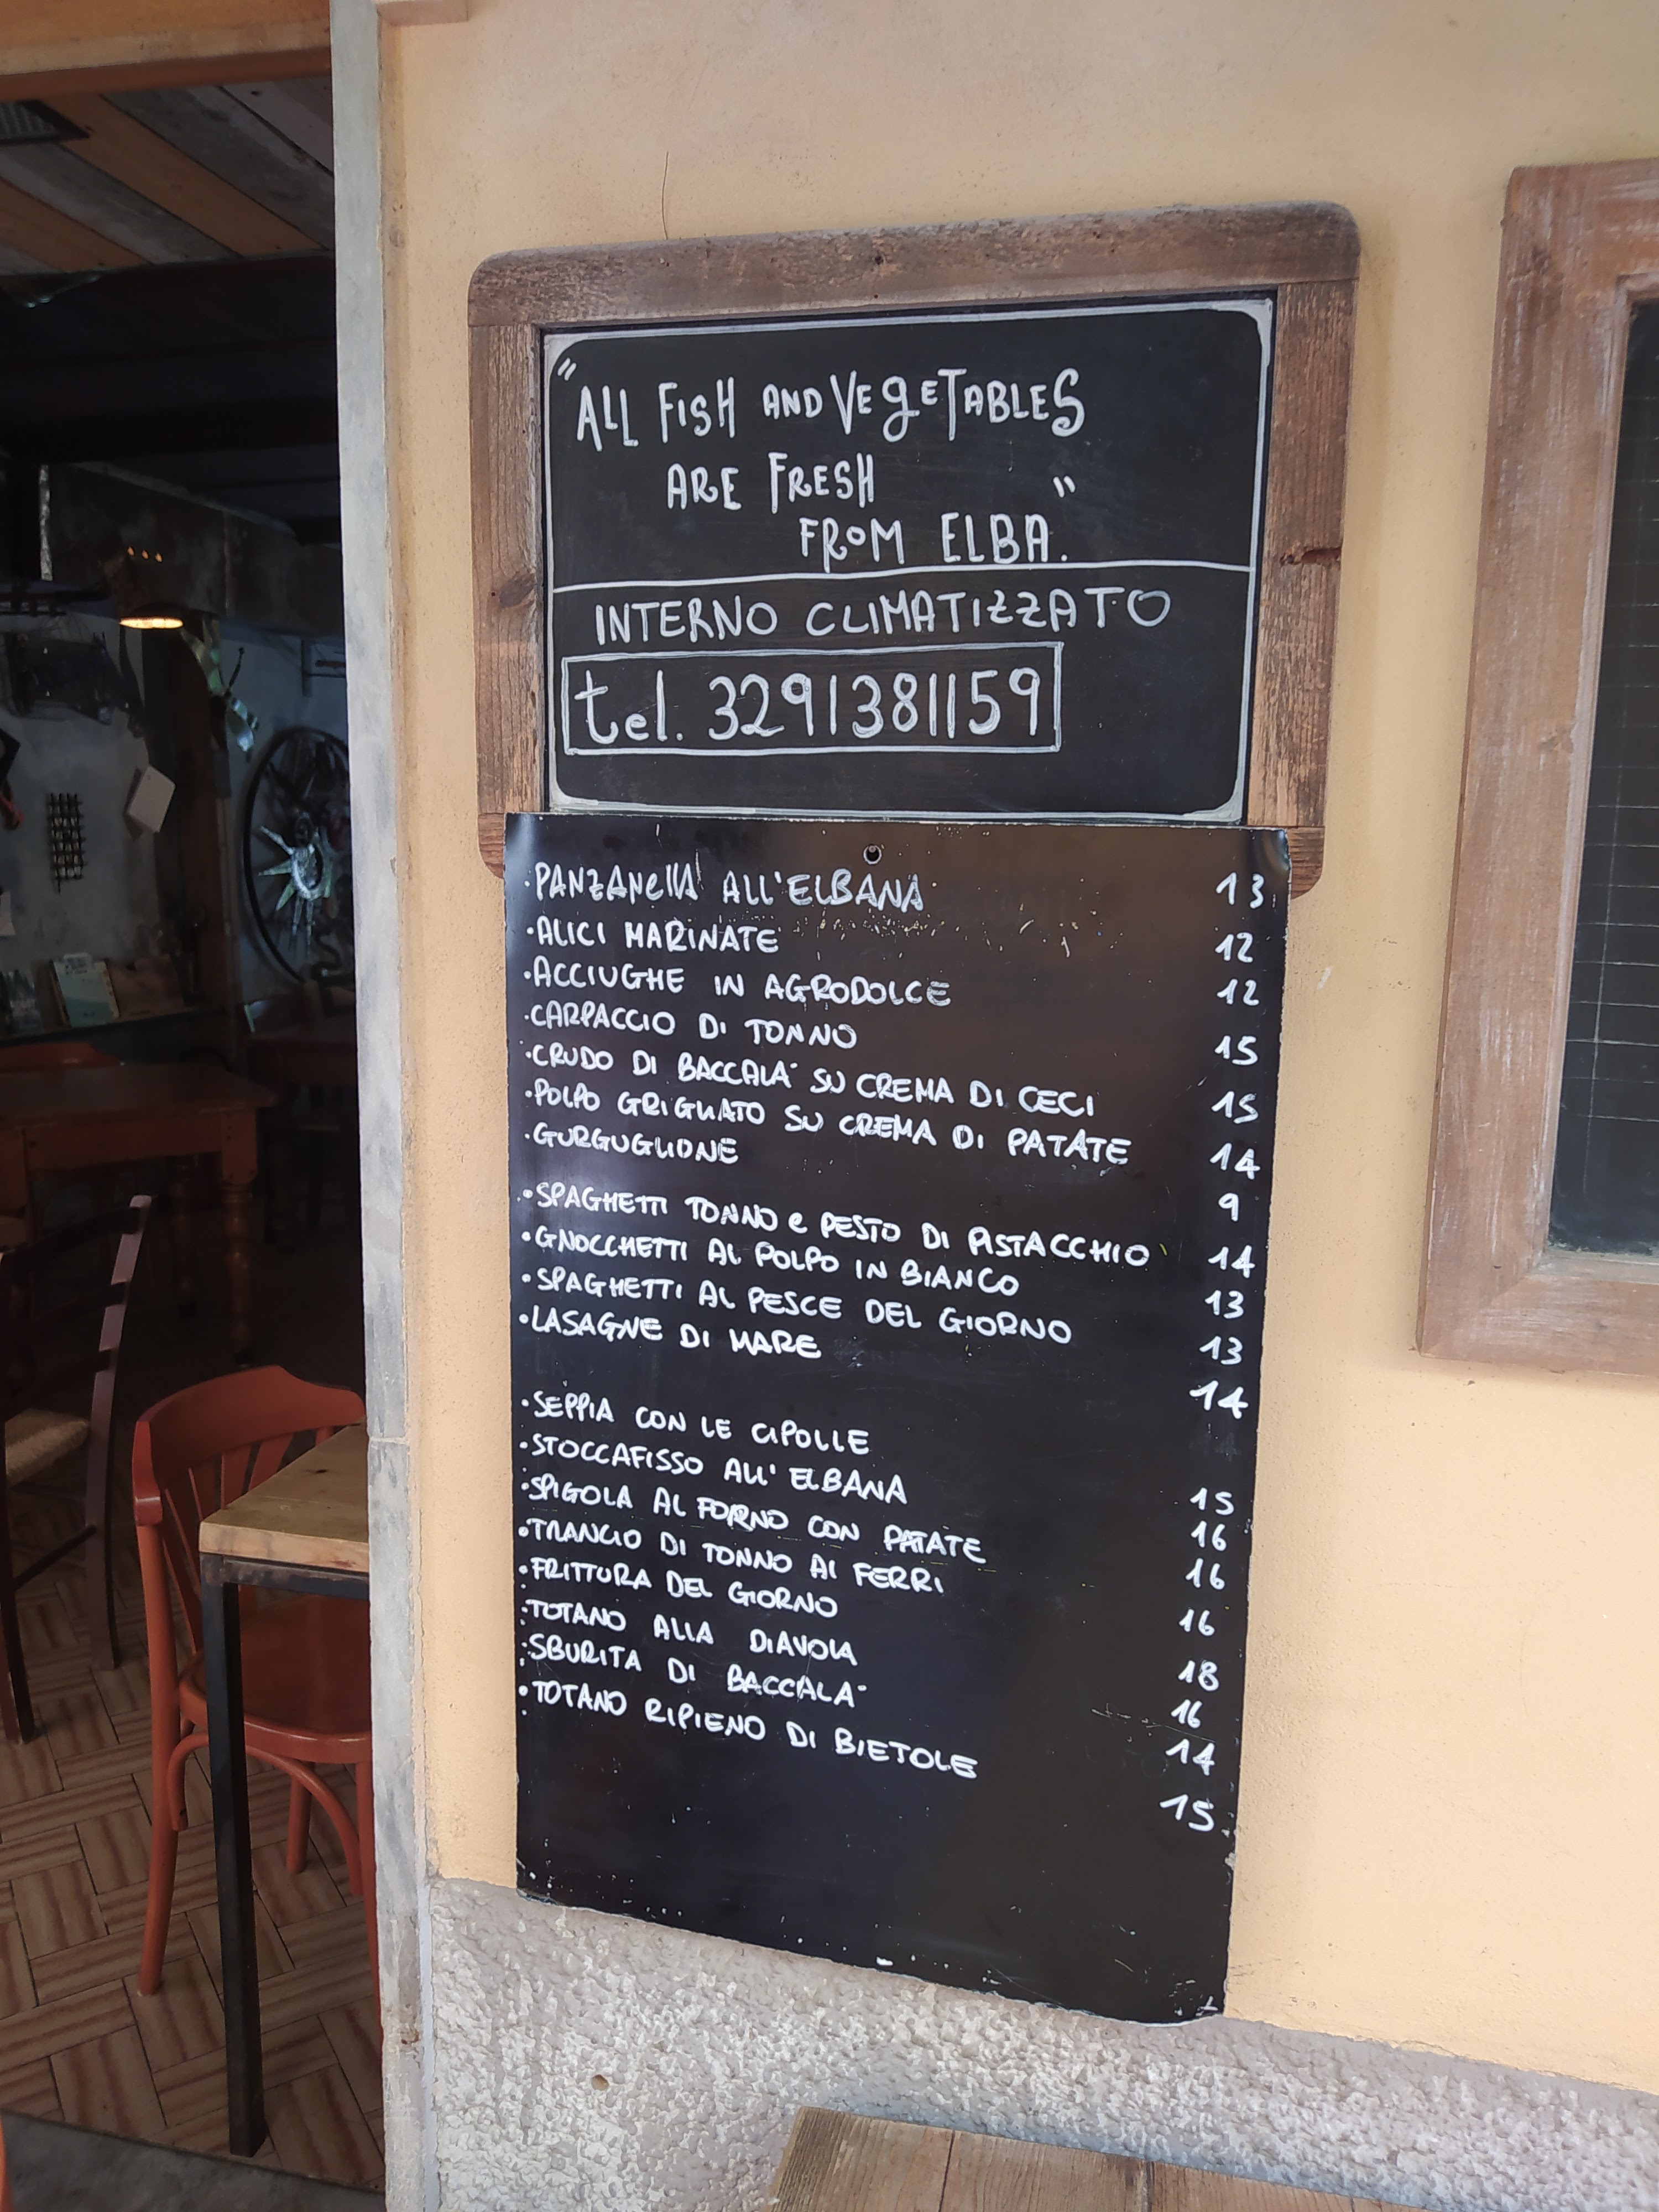 "ALL FISH AND VEGETABLES
ARE FRESH "
FROM ELBA.
INTERNO CLIMATIZZATO
tel. 3291381159
·PANZANELLA ALL'ELBANA 13
·ALICI MARINATE 12
·ACCIUGHE IN AGRODOLCE 12
·CARPACCIO DI TONNO 15
·CRUDO DI BACCALA' SU CREMA DI CECI 15
·POLPO GRIGLIATO SU CREMA DI PATATE 14
·GURGUGLIONE 9
·SPAGHETTI TONNO e PESTO DI PISTACCHIO 14
·GNOCCHETTI AL POLPO IN BIANCO 13
·SPAGHETTI AL PESCE DEL GIORNO 13
·LASAGNE DI MARE 14
·SEPPIA CON LE CIPOLLE 15
·STOCCAFISSO ALL'ELBANA 16
·SPIGOLA AL FORNO CON PATATE 16
·TRANCIO DI TONNO AI FERRI 16
·FRITTURA DEL GIORNO 18
·TOTANO ALLA DIAVOLA 16
·SBURITA DI BACCALA' 14
·TOTANO RIPIENO DI BIETOLE 15